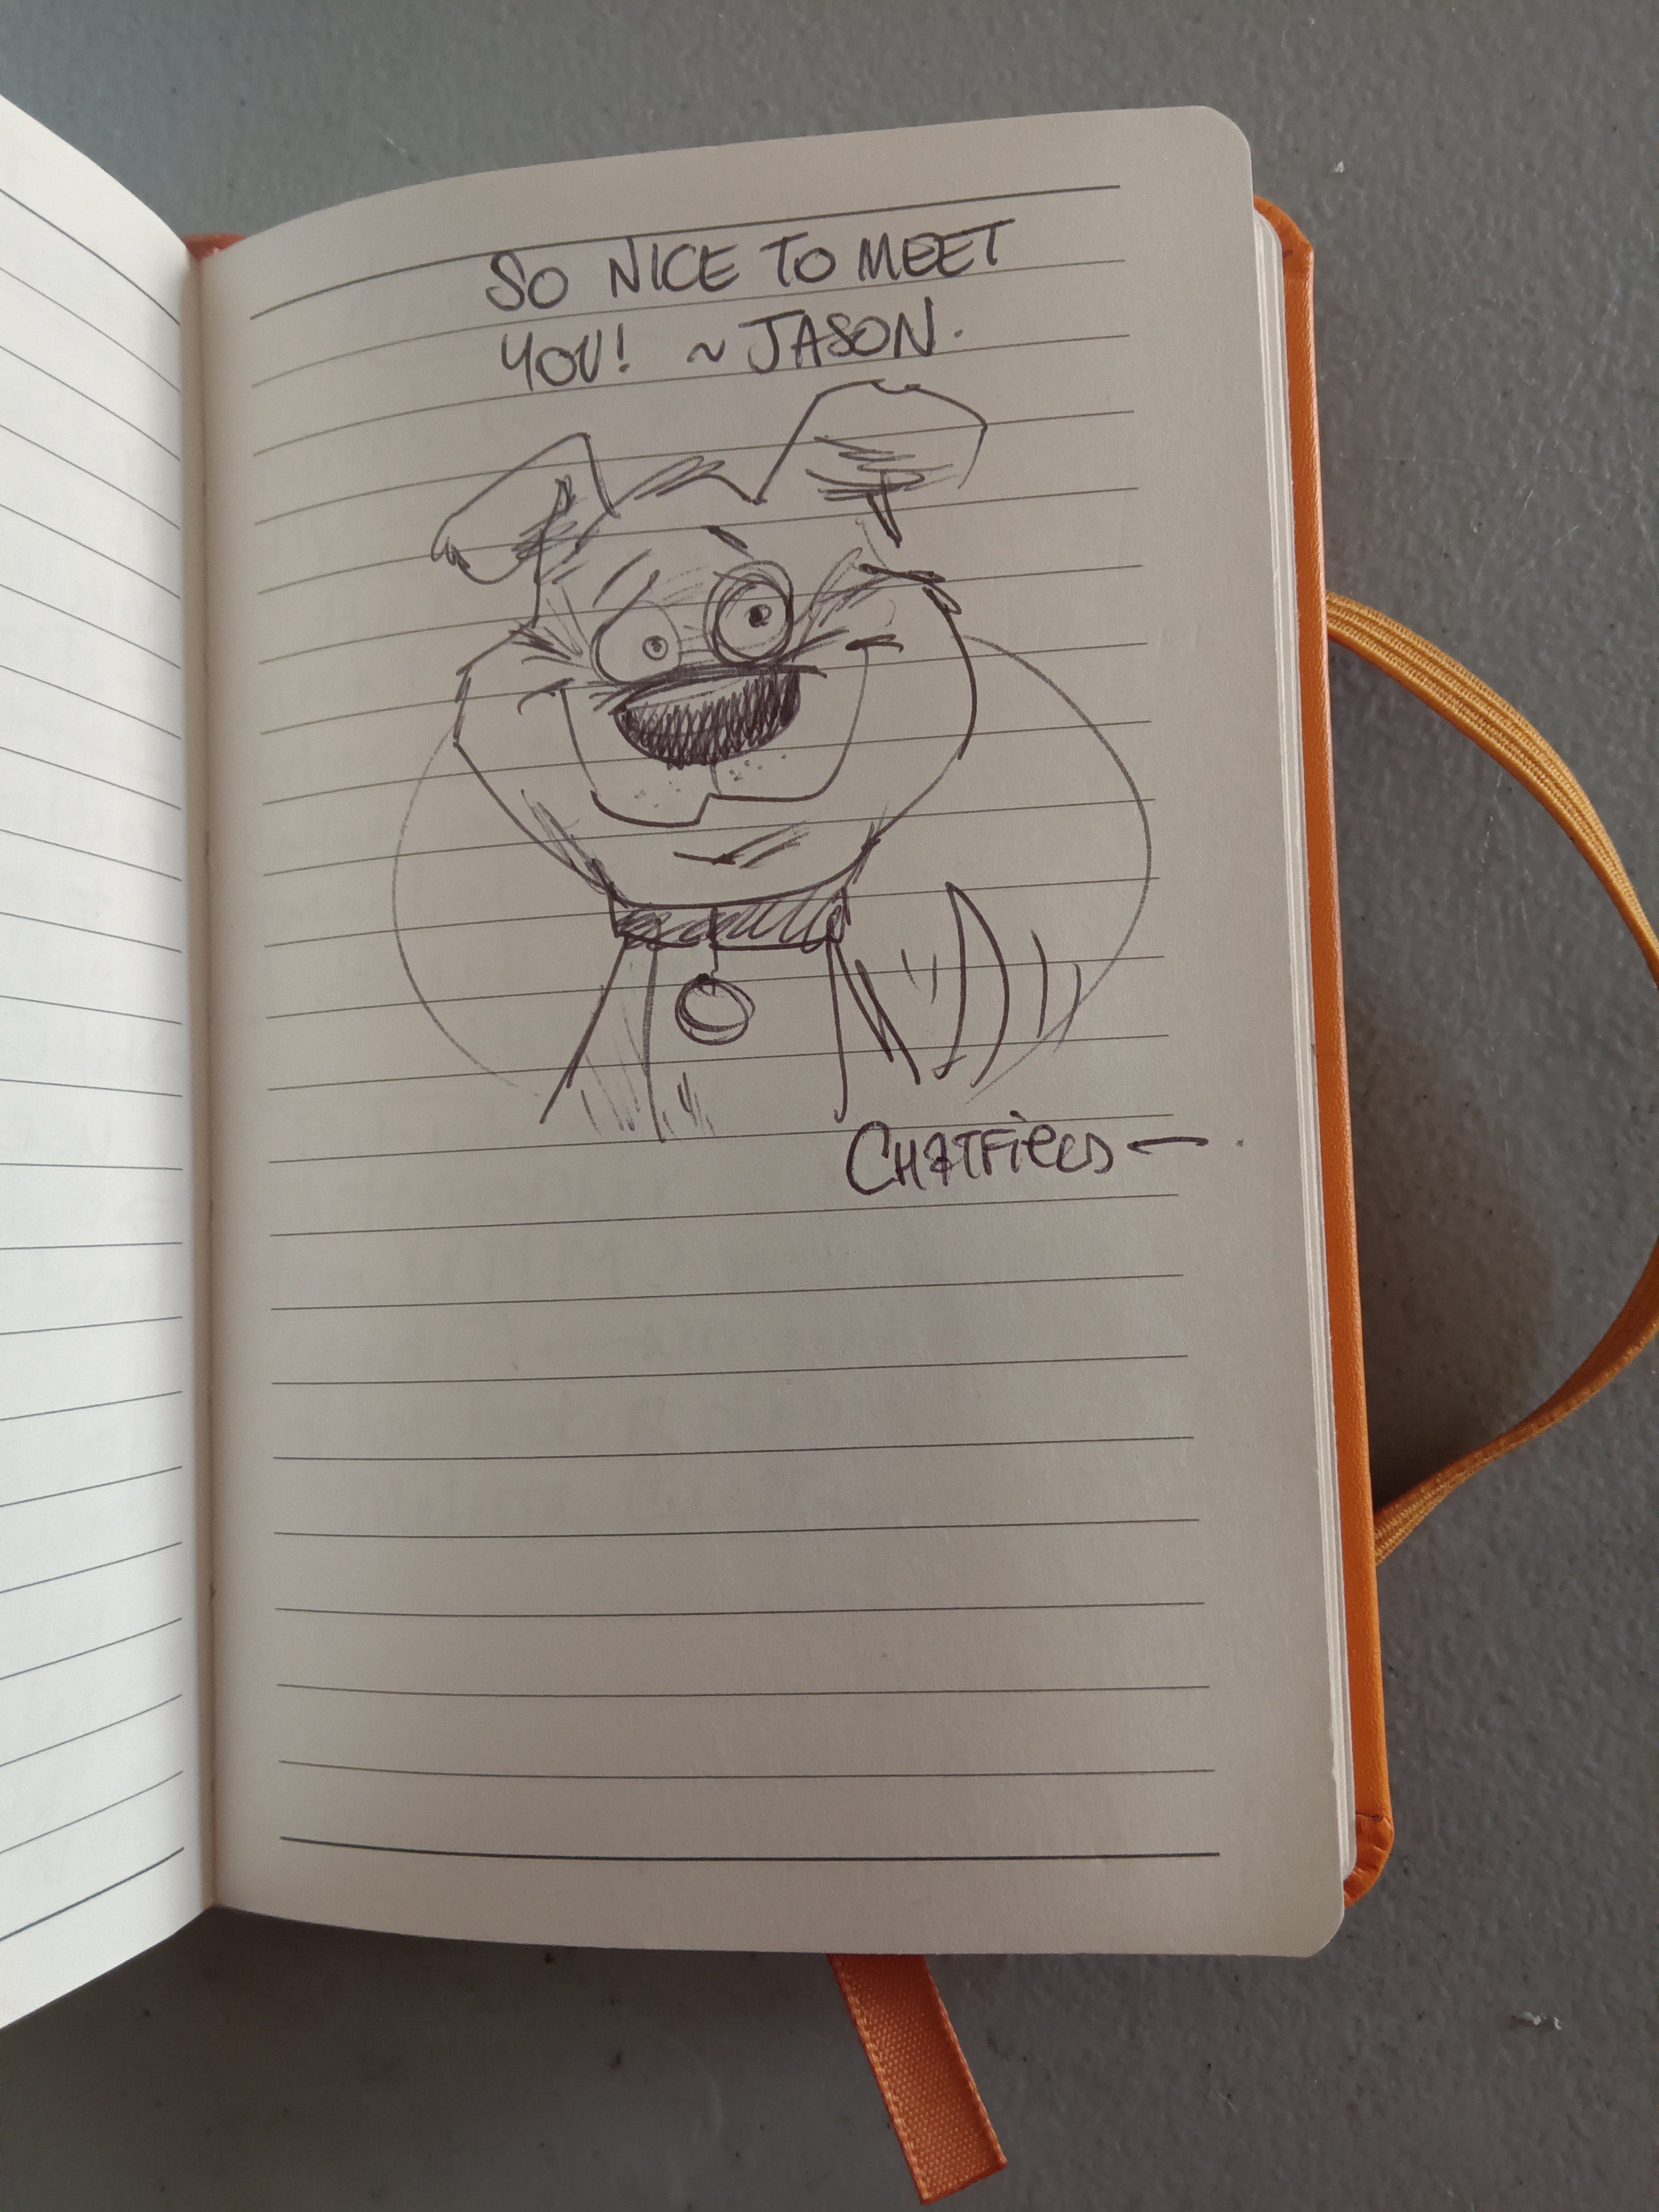 SO NICE TO MEET
YOU! ~ JASON.
CHATFIELD